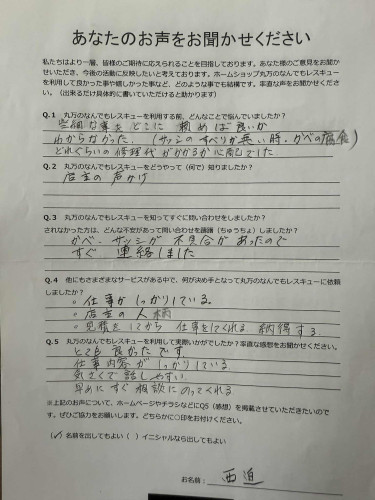 あなたのお声をお聞かせください
私たちはより一層、皆様のご期待に応えられることを目指しております。あなた様のご意見をお聞か
せいただき、今後の活動に反映したいと考えております。ホームショップ丸万のなんでもレスキュー
を利用して良かった事や嬉しかった事など、どのような事でも結構です。率直な声をお聞かせくださ
い。（出来るだけ具体的に書いていただけると助かります）
Q.1　丸万のなんでもレスキューを利用する前、どんなことで悩んでいましたか？
些細な事をどこに 頼めば良いか
わからなかった。（サッシのすべりが悪い時・かべの腐食）
どれぐらいの修理代がかかるか心配でした
Q.2　丸万のなんでもレスキューをどうやって（何で）知りましたか？
店主の声かけ
Q.3　丸万のなんでもレスキューを知ってすぐに問い合わせをしましたか？
されなかった方は、どんな不安があって問い合わせを躊躇（ちゅうちょ）しましたか？
かべ、サッシが 不具合があったので
すぐ 連絡しました
Q.4　他にもさまざまなサービスがある中で、何が決め手となって丸万のなんでもレスキューに依頼
しましたか？
。仕事がしっかりしている。
。店主の人柄
。見積をしてから 仕事をしてくれる 納得する
Q.5　丸万のなんでもレスキューを利用して実際いかがでしたか？率直な感想をお聞かせください。
とても良かったです。
仕事内容がしっかりしている
気さくで話しやすい
早めにすぐ相談にのってくれる
※上記のお声について、ホームページやチラシなどにQ5（感想）を掲載させていただきたいので
す。ぜひご協力をお願いします。どちらかに○印をお付けください。
（✓）名前を出してもよい（　）イニシャルなら出してもよい
お名前： 西迫